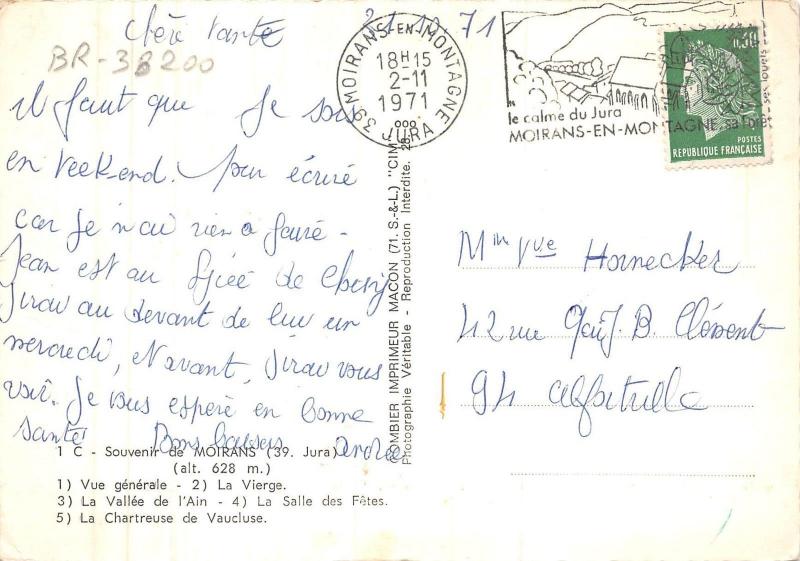 Chère tante
BR-38200
18H15
2-11
1971
39 MOIRANS-EN-MONTAGNE
JURA
le calme du Jura
MOIRANS-EN-MONTAGNE
0,30
POSTES
REPUBLIQUE FRANÇAISE
il faut que Je sois
en Veek-end. pour écrire
car Je n'ai rien a faire -
Jean est au de
J'irai au devant de lui un
mercredi, et avant, J'irai vous
voir. Je vous espère en bonne
santé Bons baisers
COMBIER IMPRIMEUR MACON (71. S.-&-L.) "CIM"
Photographie Véritable - Reproduction Interdite.
Mme Vve Hornecker
42 rue J. B. Clément
94 alfortville
1 C - Souvenir de MOIRANS (39. Jura)
(alt. 628 m.)
1) Vue générale - 2) La Vierge.
3) La Vallée de l'Ain - 4) La Salle des Fêtes.
5) La Chartreuse de Vaucluse.